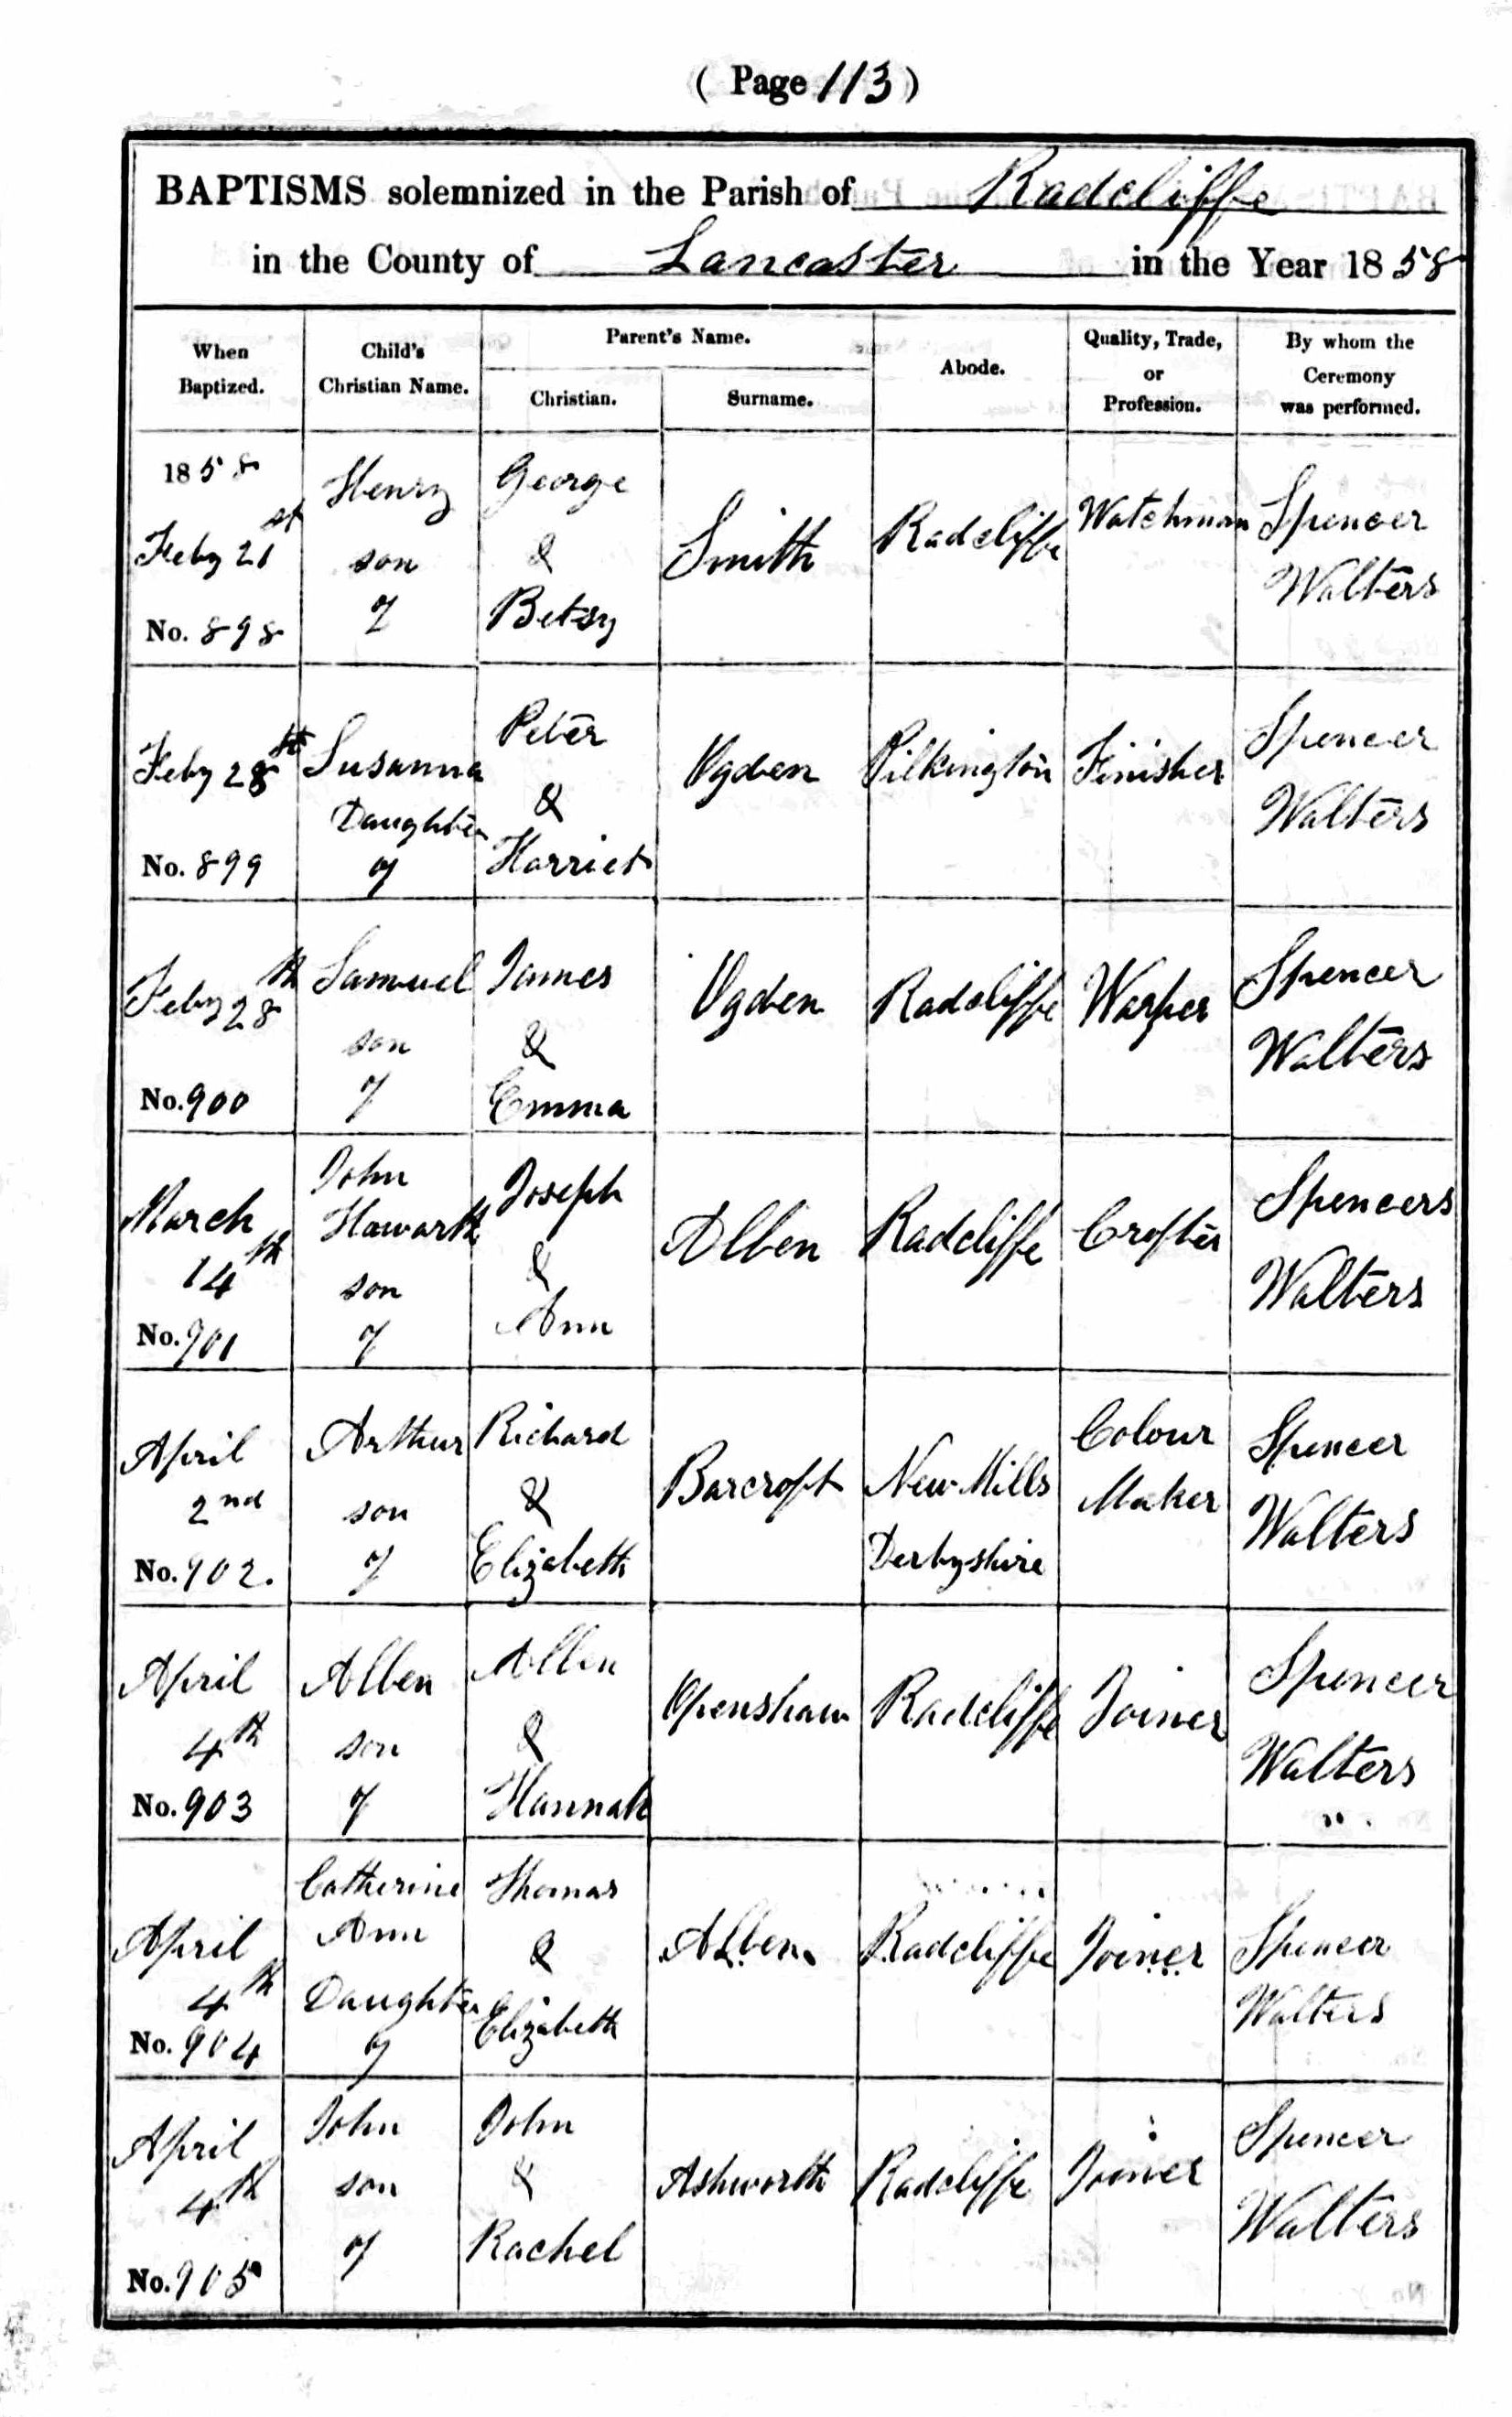 ( Page 113 )
BAPTISMS solemnized in the Parish of Radcliffe
in the County of Lancaster in the Year 1858
When Baptized.
Child's Christian Name.
Parent's Name.
Christian.
Surname.
Abode.
Quality, Trade, or Profession.
By whom the Ceremony was performed.
1858
Feby 21st
No. 898
Henry
son
of
George
&
Betsy
Smith
Radcliffe
Watchman
Spencer
Walters
Feby 28th
No. 899
Susanna
Daughter
of
Peter
&
Harriet
Ogden
Pilkington
Finisher
Spencer
Walters
Feby 28th
No. 900
Samuel
son
of
James
&
Emma
Ogden
Radcliffe
Warper
Spencer
Walters
March
14th
No. 901
John
Howarth
son
of
Joseph
&
Ann
Allen
Radcliffe
Crofter
Spencers
Walters
April
2nd
No. 902.
Arthur
son
of
Richard
&
Elizabeth
Barcroft
New Mills
Derbyshire
Colour
Maker
Spencer
Walters
April
4th
No. 903
Allen
son
of
Allen
&
Hannah
Openshaw
Radcliffe
Joiner
Spencer
Walters
April
4th
No. 904
Catherine
Ann
Daughter
of
Thomas
&
Elizabeth
Allen
Radcliffe
Joiner
Spencer
Walters
April
4th
No. 905
John
son
of
John
&
Rachel
Ashworth
Radcliffe
Joiner
Spencer
Walters